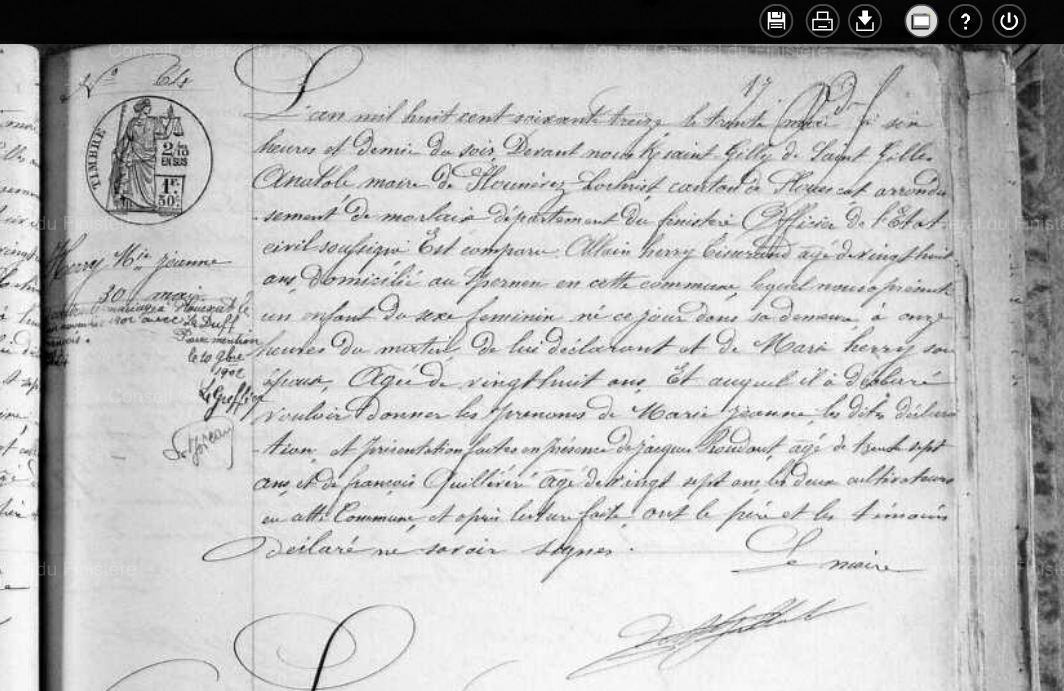 N° 64
17
TIMBRE
2/10
EN SUS
1F.
50c.
L'an mil huit cent soixante treize le trente mai à six
heures et demie du soir Devant nous Saint Gilly de Saint Gilles
Anatole maire de Plounévez Lochrist canton de Plouescat arrondis
sement de morlaix département du finistère Officier de l'Etat
civil soussigné Est comparu Allain herry agé de vingt huit
ans, Domicilié au en cette commune lequel nous a présenté
un enfant du sexe feminin né ce jour dans sa demeure à onze
heures du matin de lui déclarant et de Marie herry son
épouse, Agée de vingt huit ans Et auquel il à déclaré
vouloir donner les prenoms de Marie jeanne les dites déclara
tion et présentation faites en présence de jacques Roudaut, agé de trente sept
ans, et de françois Quilliévéré agé de vingt sept ans les deux cultivateurs
en cette Commune, et après lecture faite, ont le père et les témoins
déclaré ne savoir signer.
Le maire
Herry Mie jeanne
30 mai
mariage à Plouescat le
novembre 1901 avec Le Duff
françois.
Pour mention
le 10 9bre
1901
Le Greffier
Conseil Général du Finistère